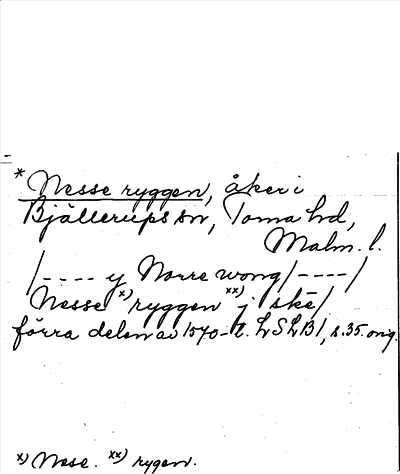 * Nesse ryggen, åker i
Bjällerups sn, Torna hd,
Malm. l.
/---- y Norre wong/----/
Nesse x) ryggen xx) j skē/
förra delen av 1570-t. LSLB 1, s. 35. orig.
x) Nese. xx) rygen.